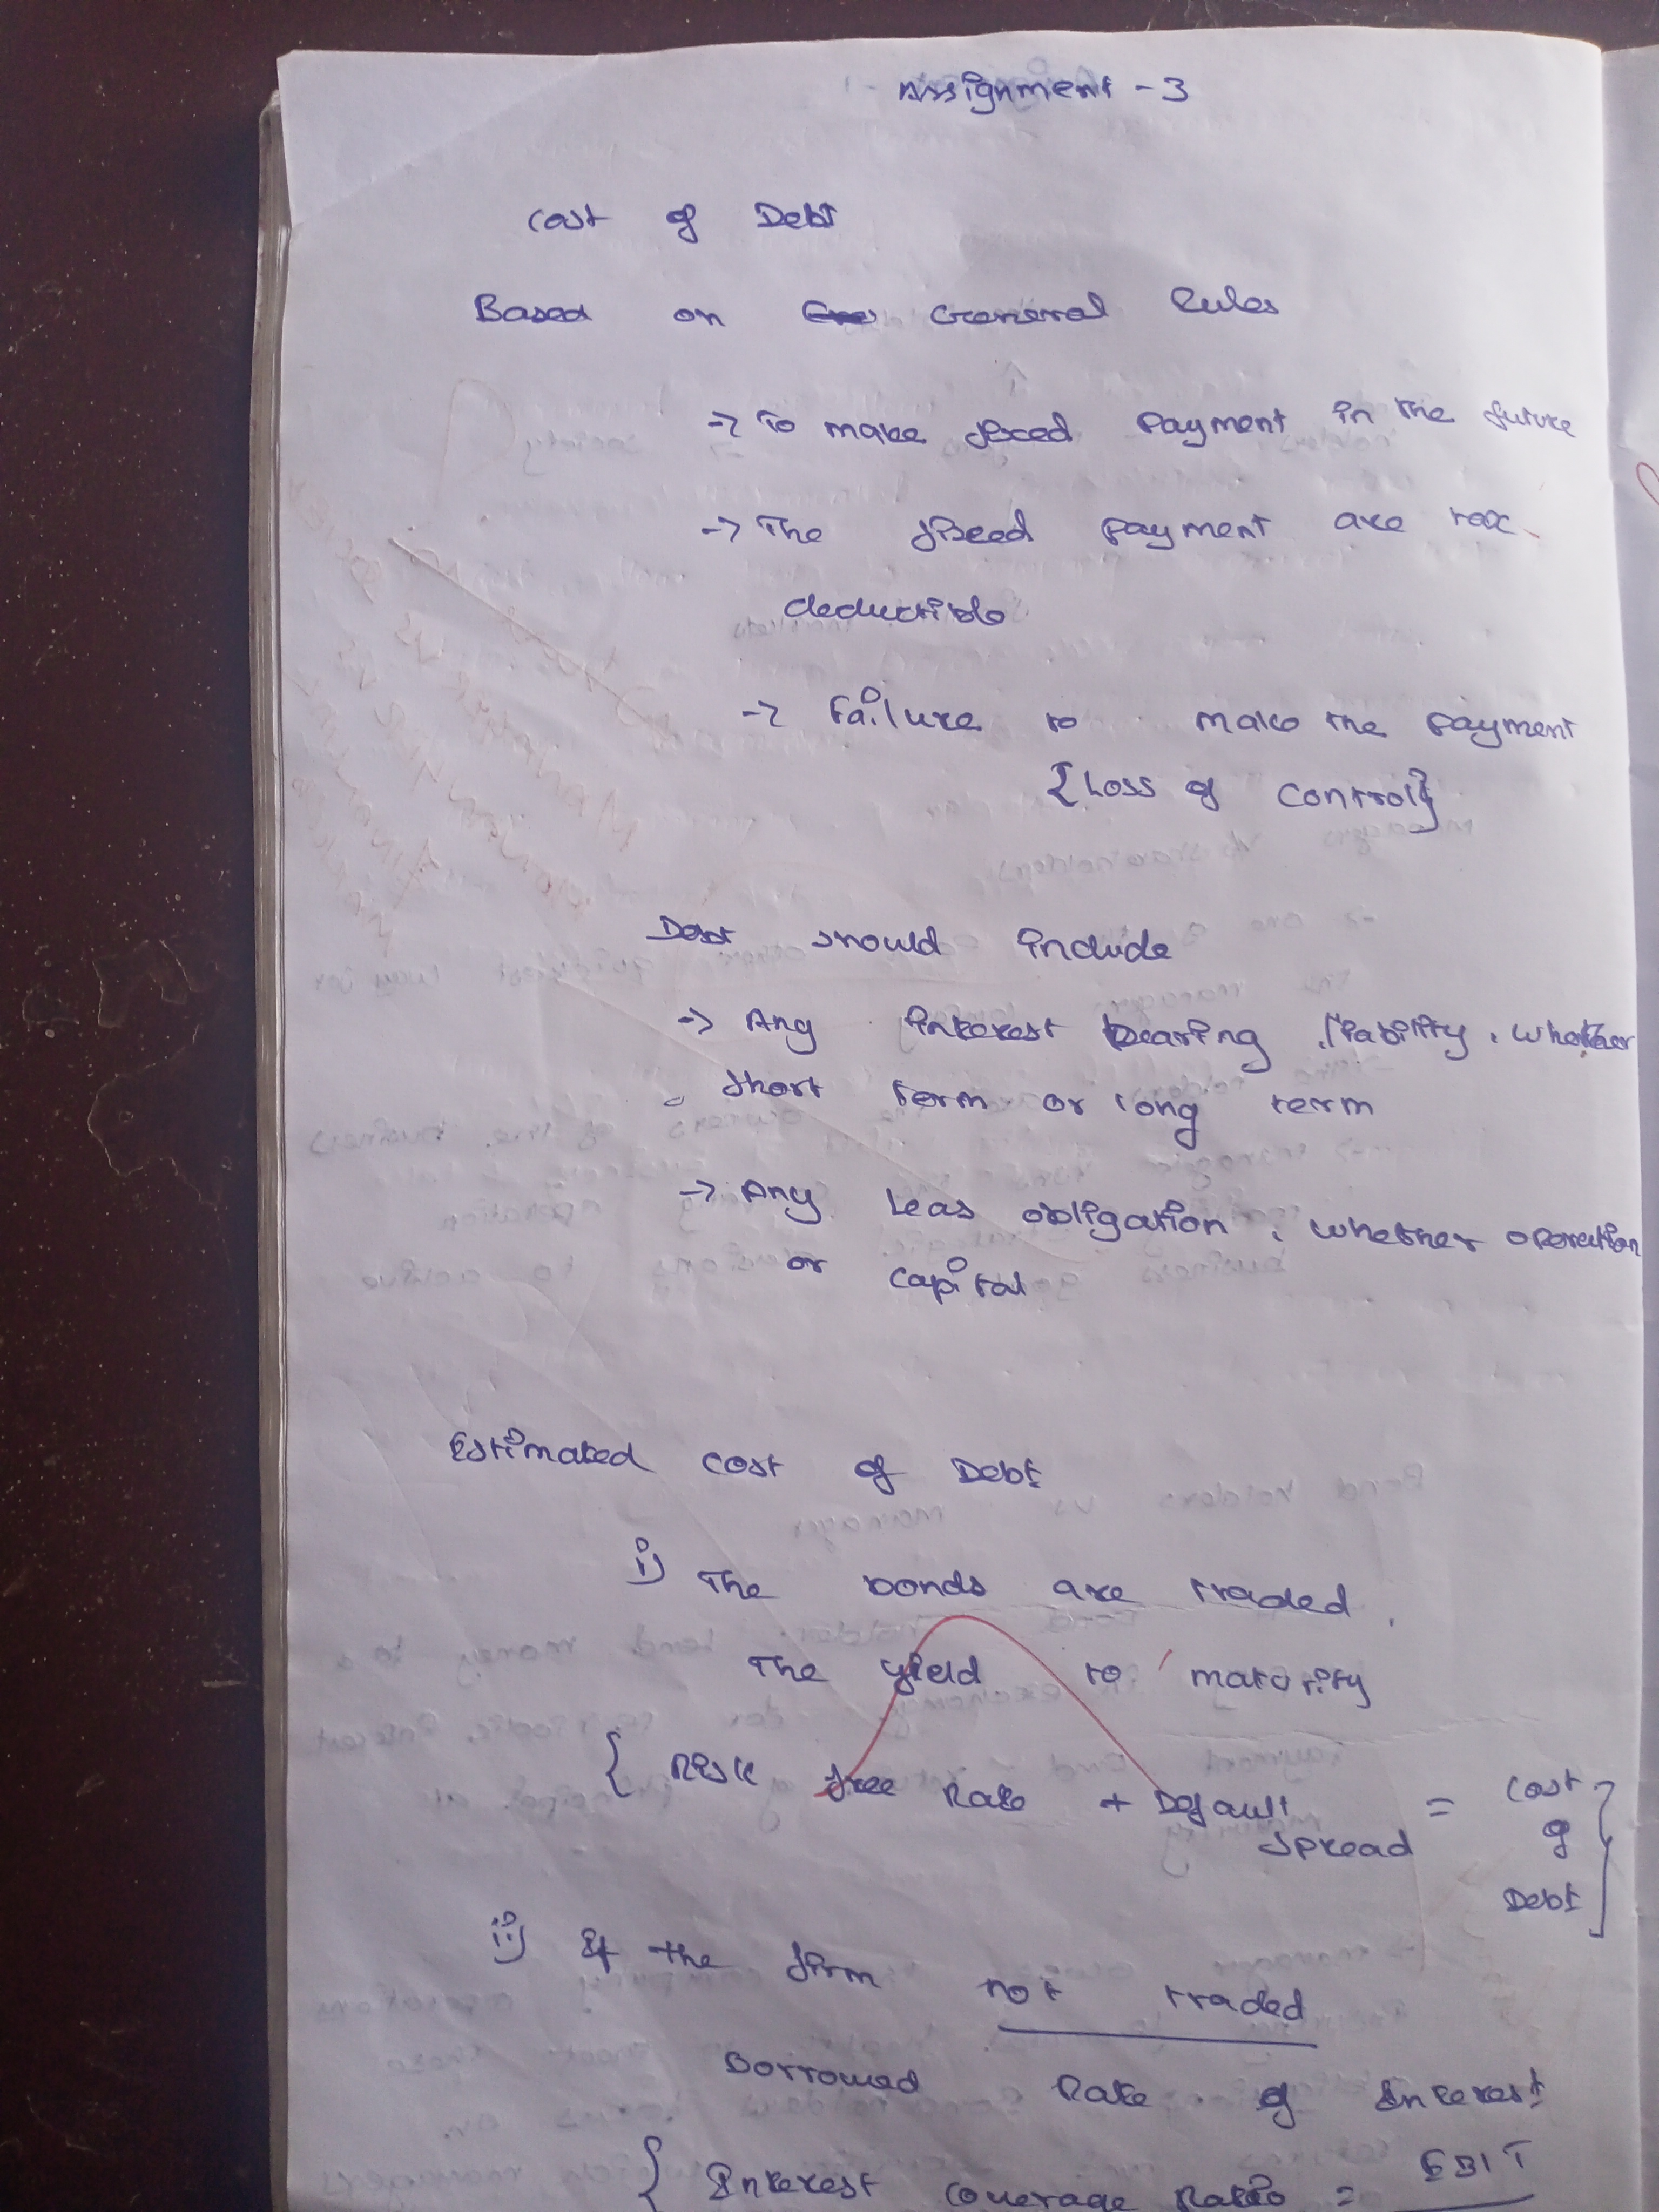 Assignment - 3
Cost of Debt
Based on General Rules
-> To make fixed payment in the future
-> The fixed payment are tax
deductible
-> Failure to make the payment
{Loss of control}
Debt should include
-> Any interest bearing liability, whether
short term or long term
-> Any Leas obligation, whether operation
or capital
Estimated cost of Debt
i) The bonds are traded,
The yield to maturity
{ Risk free Rate + Default Spread = Cost of Debt }
ii) If the firm not traded
Borrowed Rate of Interest
{ Interest Coverage Ratio = EBIT